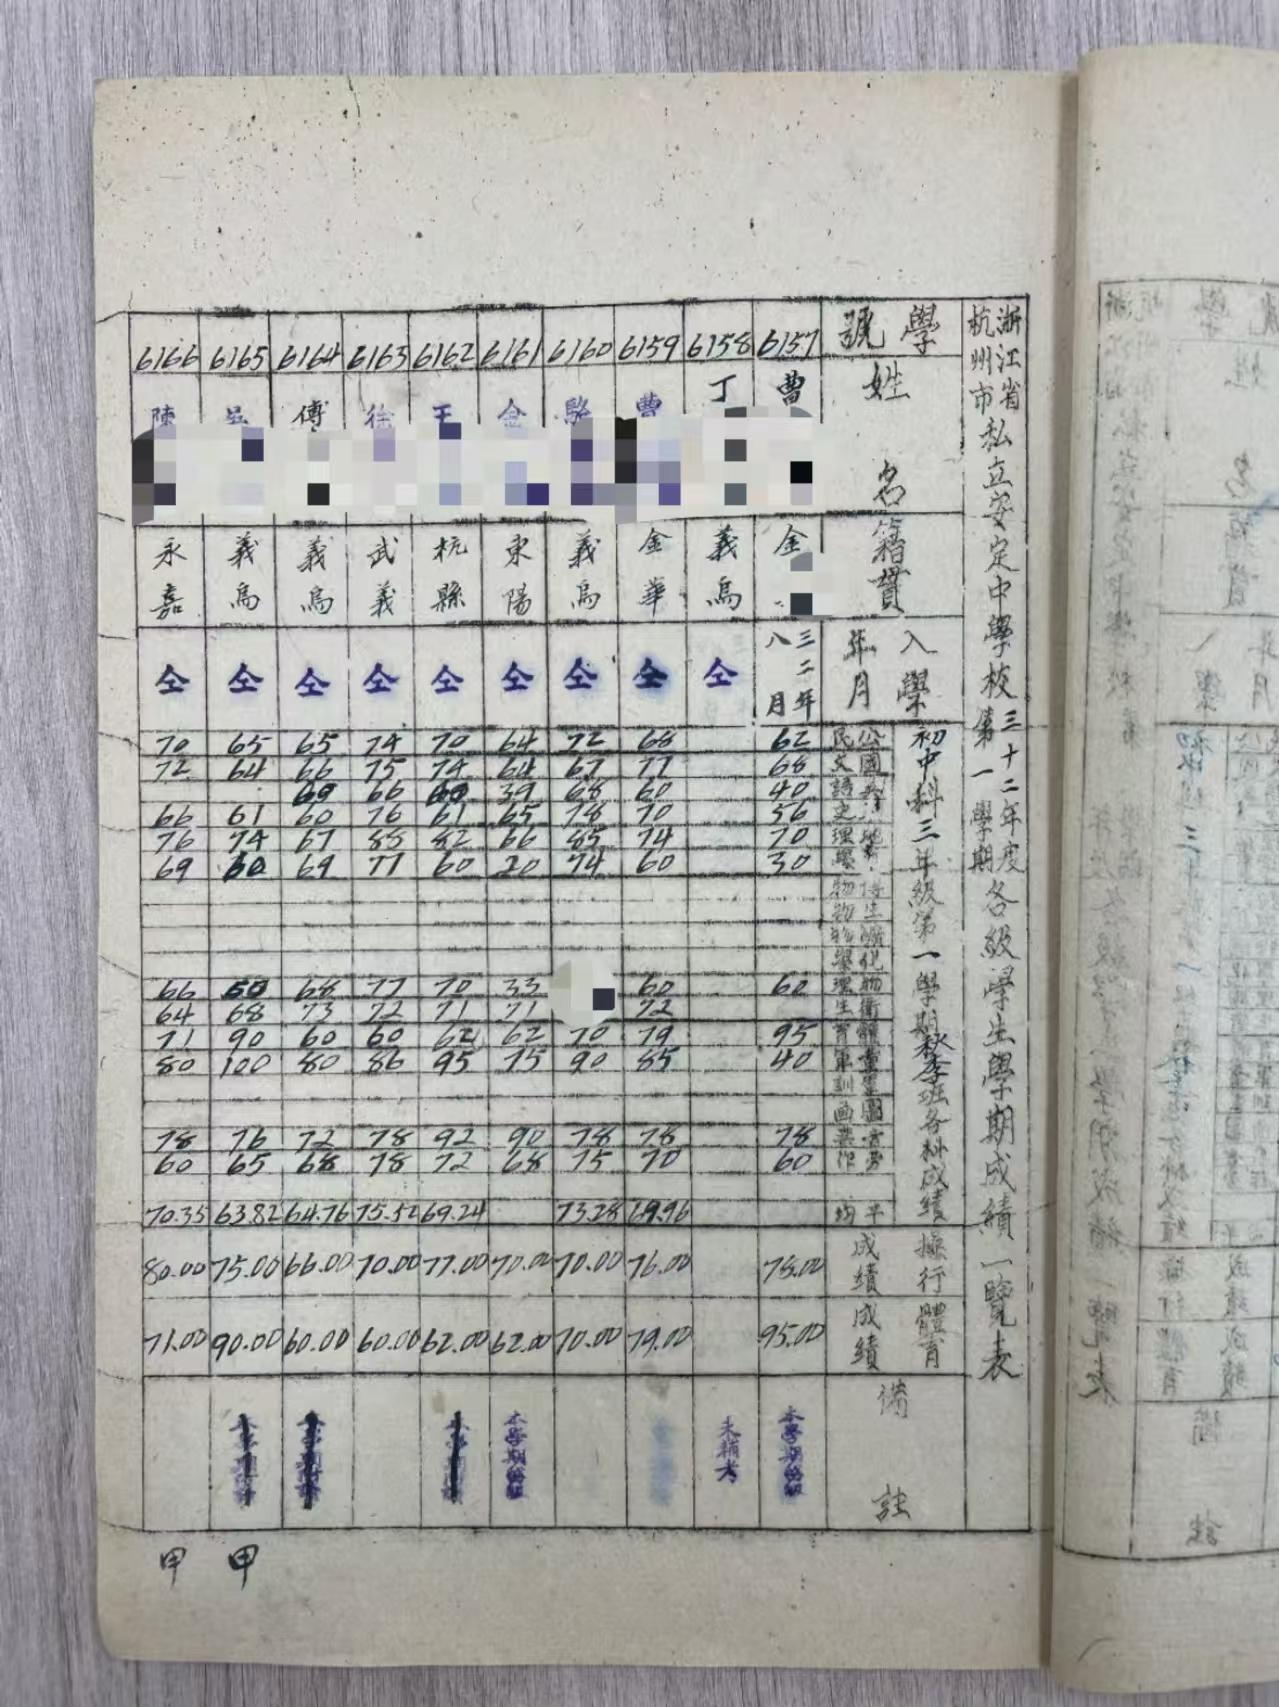 浙江省
杭州市
私立安定中學校
三十二年度
第一學期
各級學生學期成績一覽表
學號 6157 6158 6159 6160 6161 6162 6163 6164 6165 6166
姓名 曹 丁 曹 駱 金 王 徐 傅 吳 陳
籍貫 金 義烏 金華 義烏 東陽 杭縣 武義 義烏 義烏 永嘉
入學年月 三二年八月 仝 仝 仝 仝 仝 仝 仝 仝 仝
初中科三年級第一學期秋季班各科成績
公民 62 68 72 64 70 74 65 65 70
國文 68 77 67 64 74 75 66 64 72
40 60 68 39 60 66 69
56 70 78 65 61 76 60 61 66
70 74 85 66 82 88 67 74 76
30 60 74 20 60 77 69 60 69
化學
物理 60 60 33 70 77 68 60 66
衛生 72 71 71 72 73 68 64
體育 95 79 70 62 62 60 60 90 71
40 85 90 75 95 86 80 100 80
圖畫
78 78 78 90 92 78 72 76 78
勞作 60 70 75 68 72 78 68 65 60
平均 69.96 73.28 69.24 75.52 64.76 63.82 70.35
操行成績 78.00 76.00 70.00 70.00 77.00 70.00 66.00 75.00 80.00
體育成績 95.00 79.00 70.00 62.00 62.00 60.00 60.00 90.00 71.00
備註 本學期留級 未補考 本學期留級
甲 甲